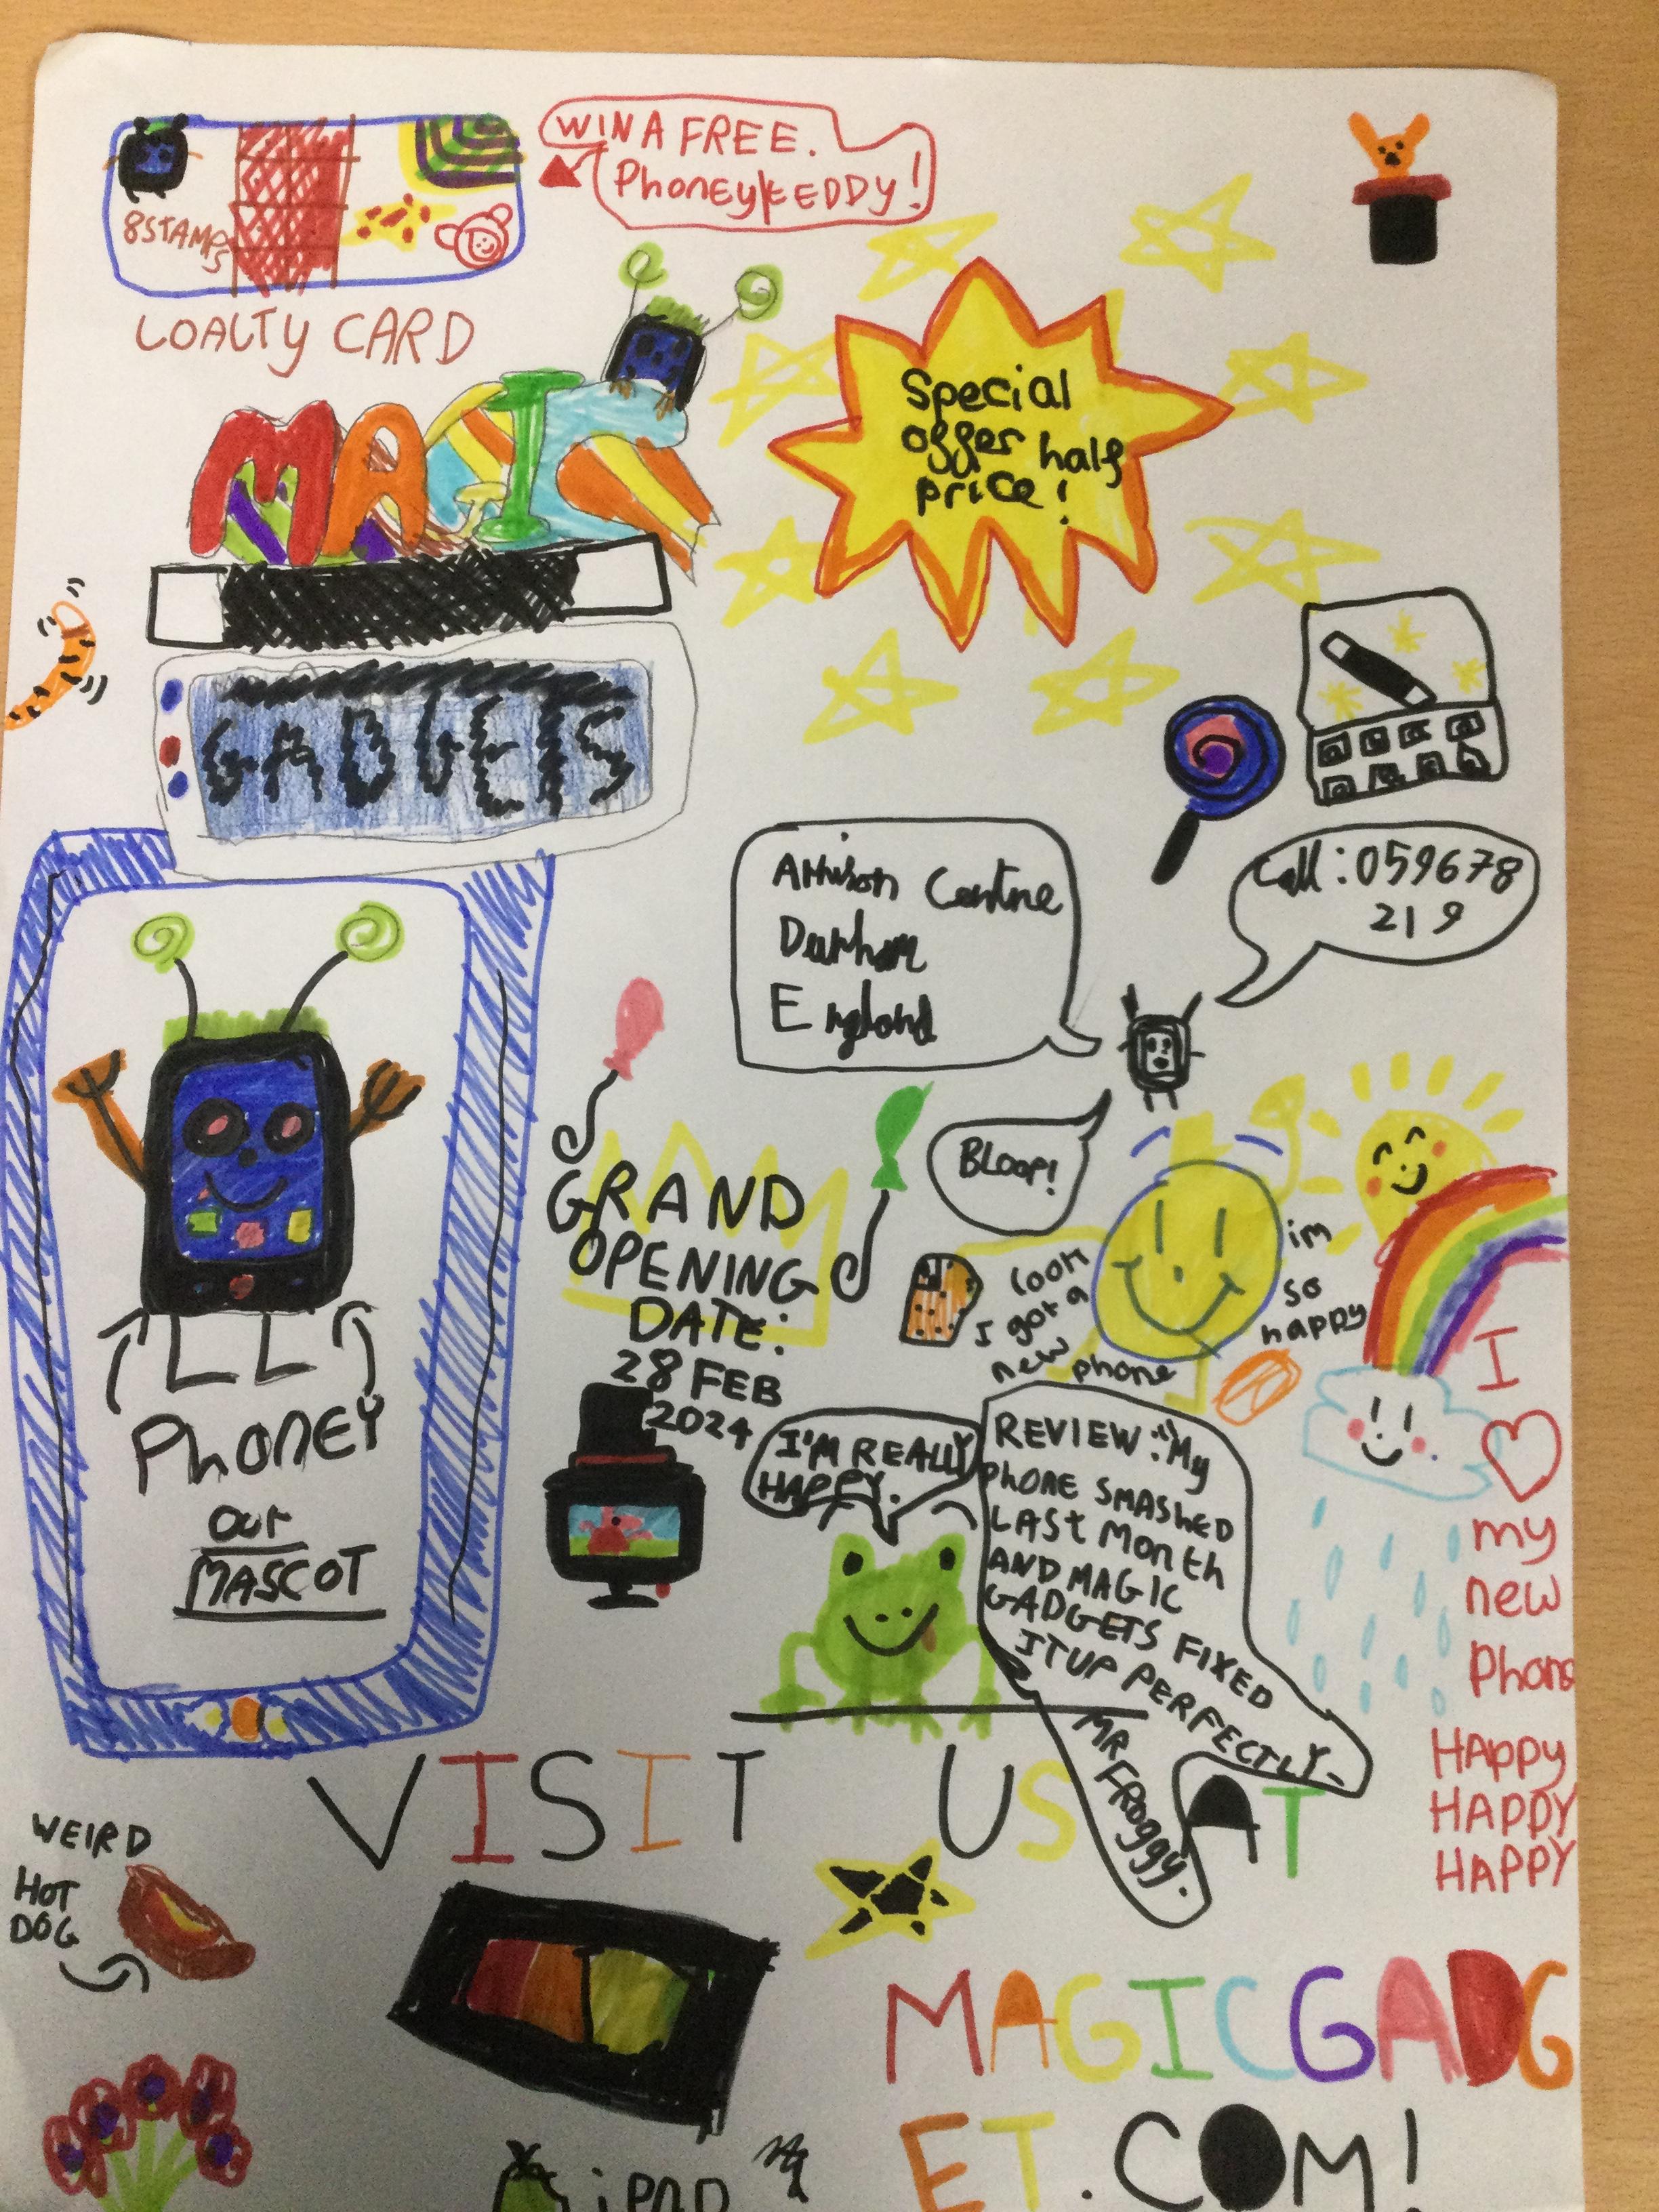 WIN A FREE.
PhonEy tEDDY!
8 STAMPS
LOALTY CARD
MAGIC
Special
offer half
price!
GADGETS
Call: 059678
219
Centre
Durham
England
BLOOP!
GRAND
OPENING
DATE:
28 FEB
2024
look
I got a
new phone
im
so
happy
PhonEY
our
MASCOT
I'M REALLY
HAPPY.
REVIEW: "My
PHONE SMASHED
LAST MONTH
AND MAGIC
GADGETS FIXED
IT UP PERFECTLY-
MR FROGGY.
I
my
new
Phone
HAPPY
HAPPY
HAPPY
VISIT US AT
WEIRD
HOT
DOG
MAGICGADG
ET.COM!
iPAD